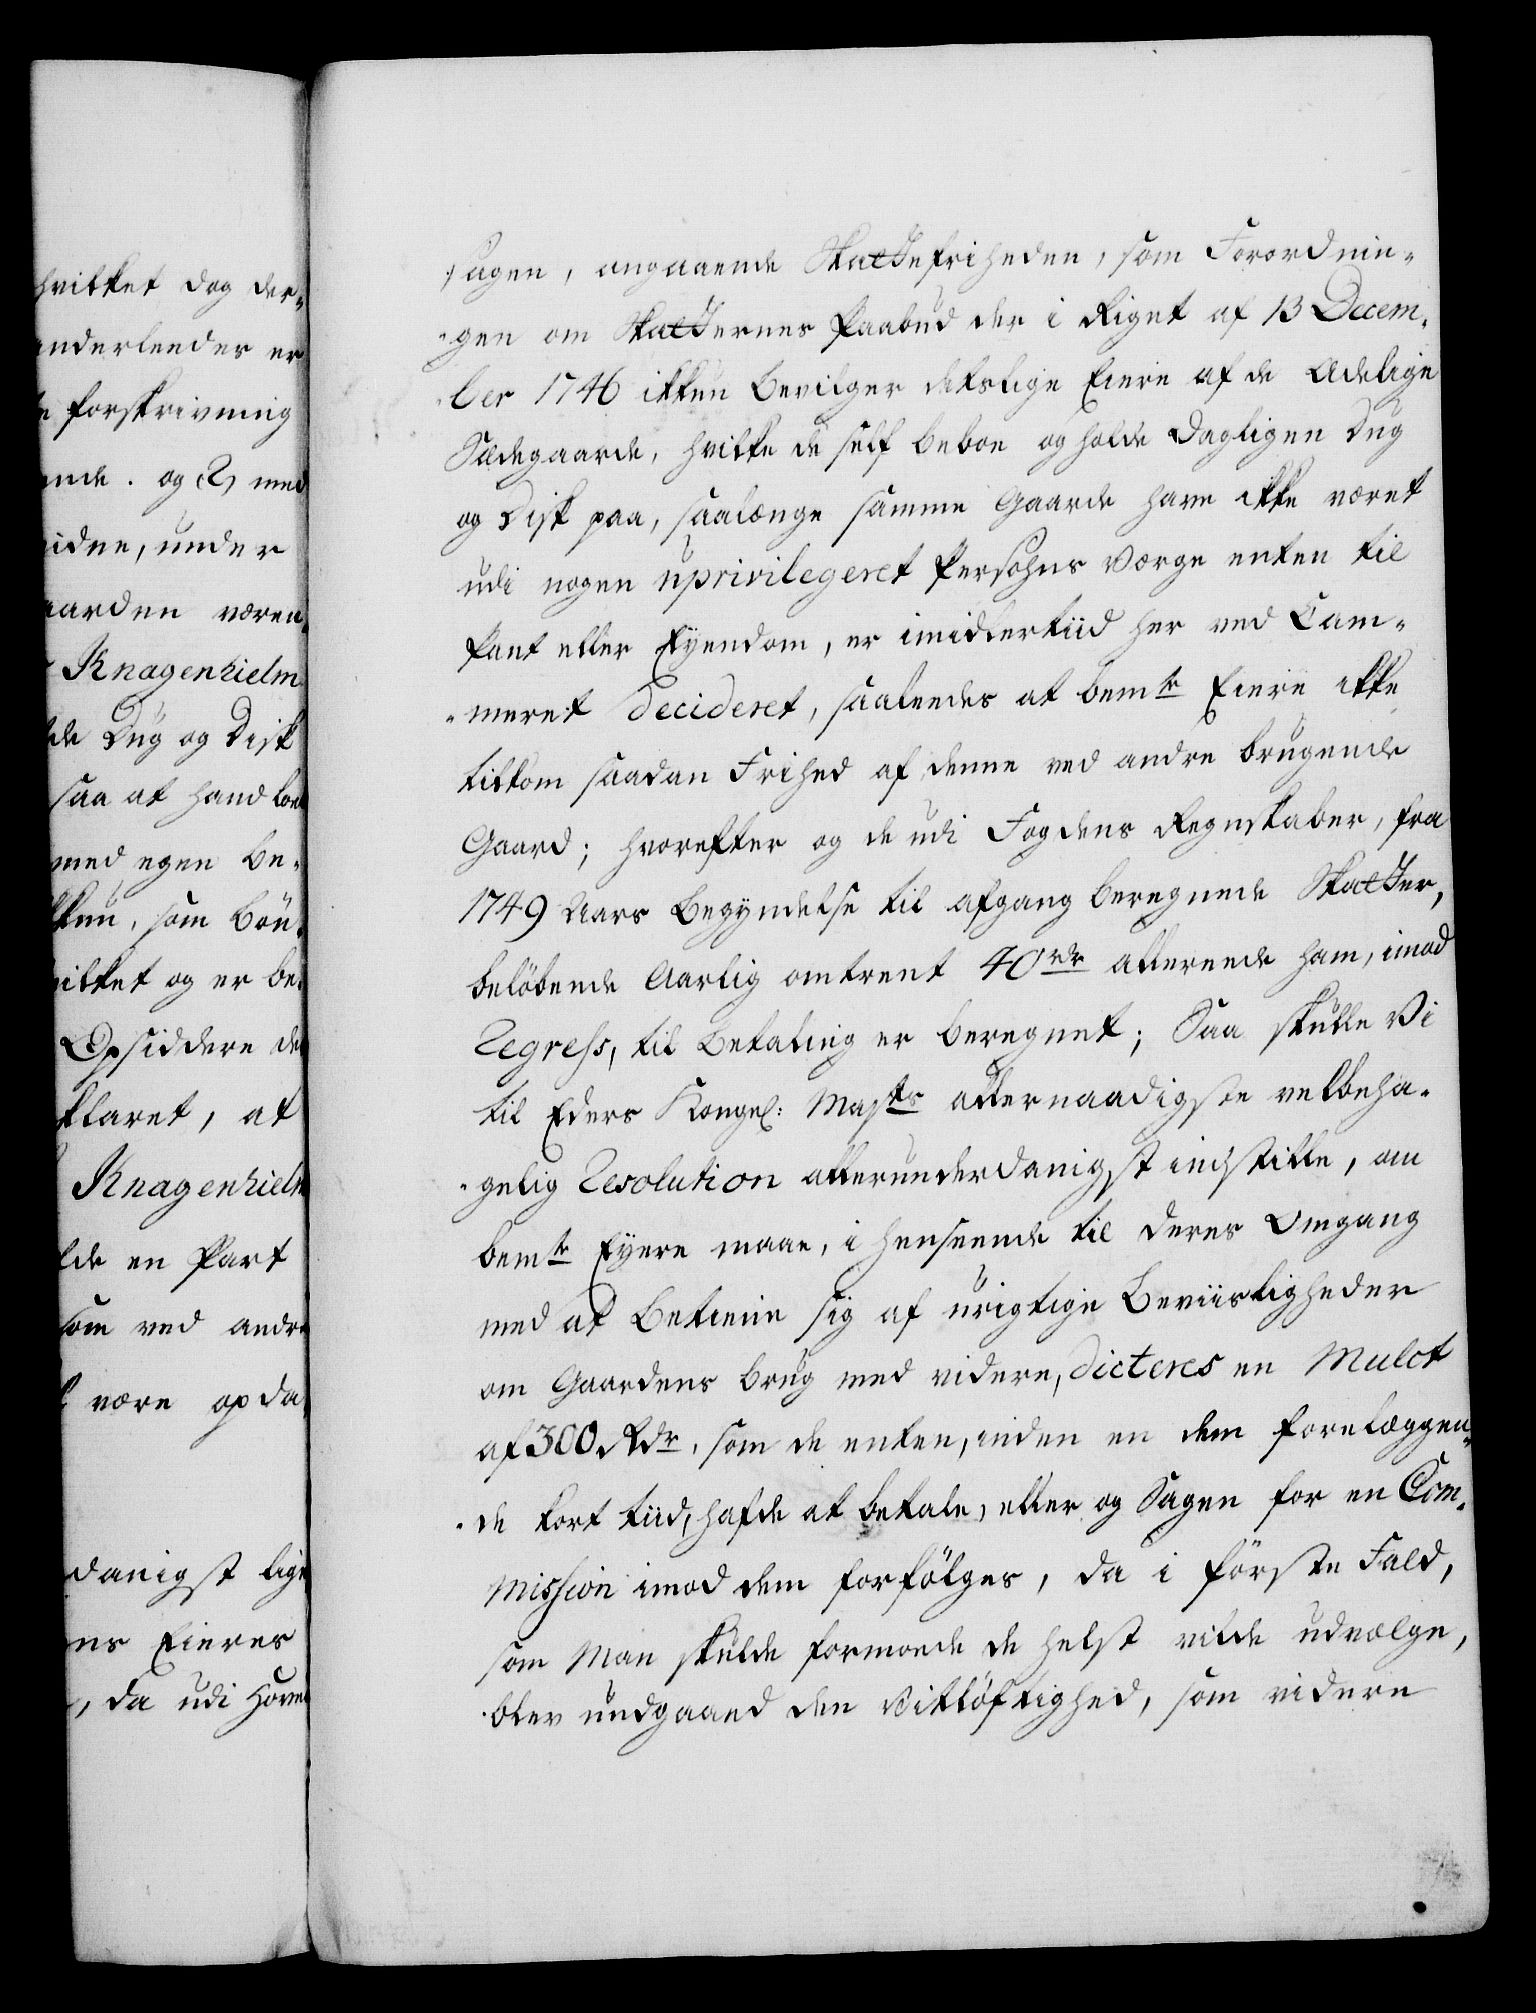 hvilket dog der¬
anderleedes er
forskrivning
ende. og 2) med
under
gaarden væren¬
Knagenhielm
de Dug og Disk
saa at hand lod
med egen be¬
som bön¬
hvilket og er be¬
Opsiddere de
klaret, at
Knagenhielm
lde en Part
som ved andre
være opda¬
danigst lige
ns Eieres
, da udi Hoved
sagen, angaaende Skattefriheden, som Forordnin¬
gen om Skatternes Paabud der i Riget af 13 Decem¬
ber 1746 ikkun bevilger deslige Eiere af de Adelige
Sædegaarde, hvilke de self beboe og holde Dagligen Dug
og Disk paa, saalænge samme Gaarde have ikke været
udi nogen uprivilegeret Persohns Værge enten til
Pant eller Eyendom, er imidlertiid her ved Cam¬
meret decideret, saaleedes at bemte Eiere ikke
tilkom saadan Frihed af denne ved andre brugende
Gaard; hvorefter og de udi Fogdens Regnskaber, fra
1749 Aars Begyndelse til afgang beregnede Skatter,
belöbende Aarlig omtrent 40 rdr allereede ham, imod
Regress, til Betaling er beregnet; Saa skulle Vi
til Eders Kongel: Mayts allernaadigste velbeha¬
gelig Resolution allerunderdanigst indstille, om
bemte Eyere maae, i henseende til deres Omgang
med at betiene sig af urigtige Beviisligheder
om Gaardens brug med videre, dicteres en Mulct
af 300 Rdr, som de enten, inden en dem forelæggen¬
de kort tiid, hafde at betale, eller og Sagen for en Com¬
mission imod dem forfölges, da i förste Fald,
som Man skulde formoede de helst vilde udvælge,
blev undgaaed den Vitlöftighed, som videre